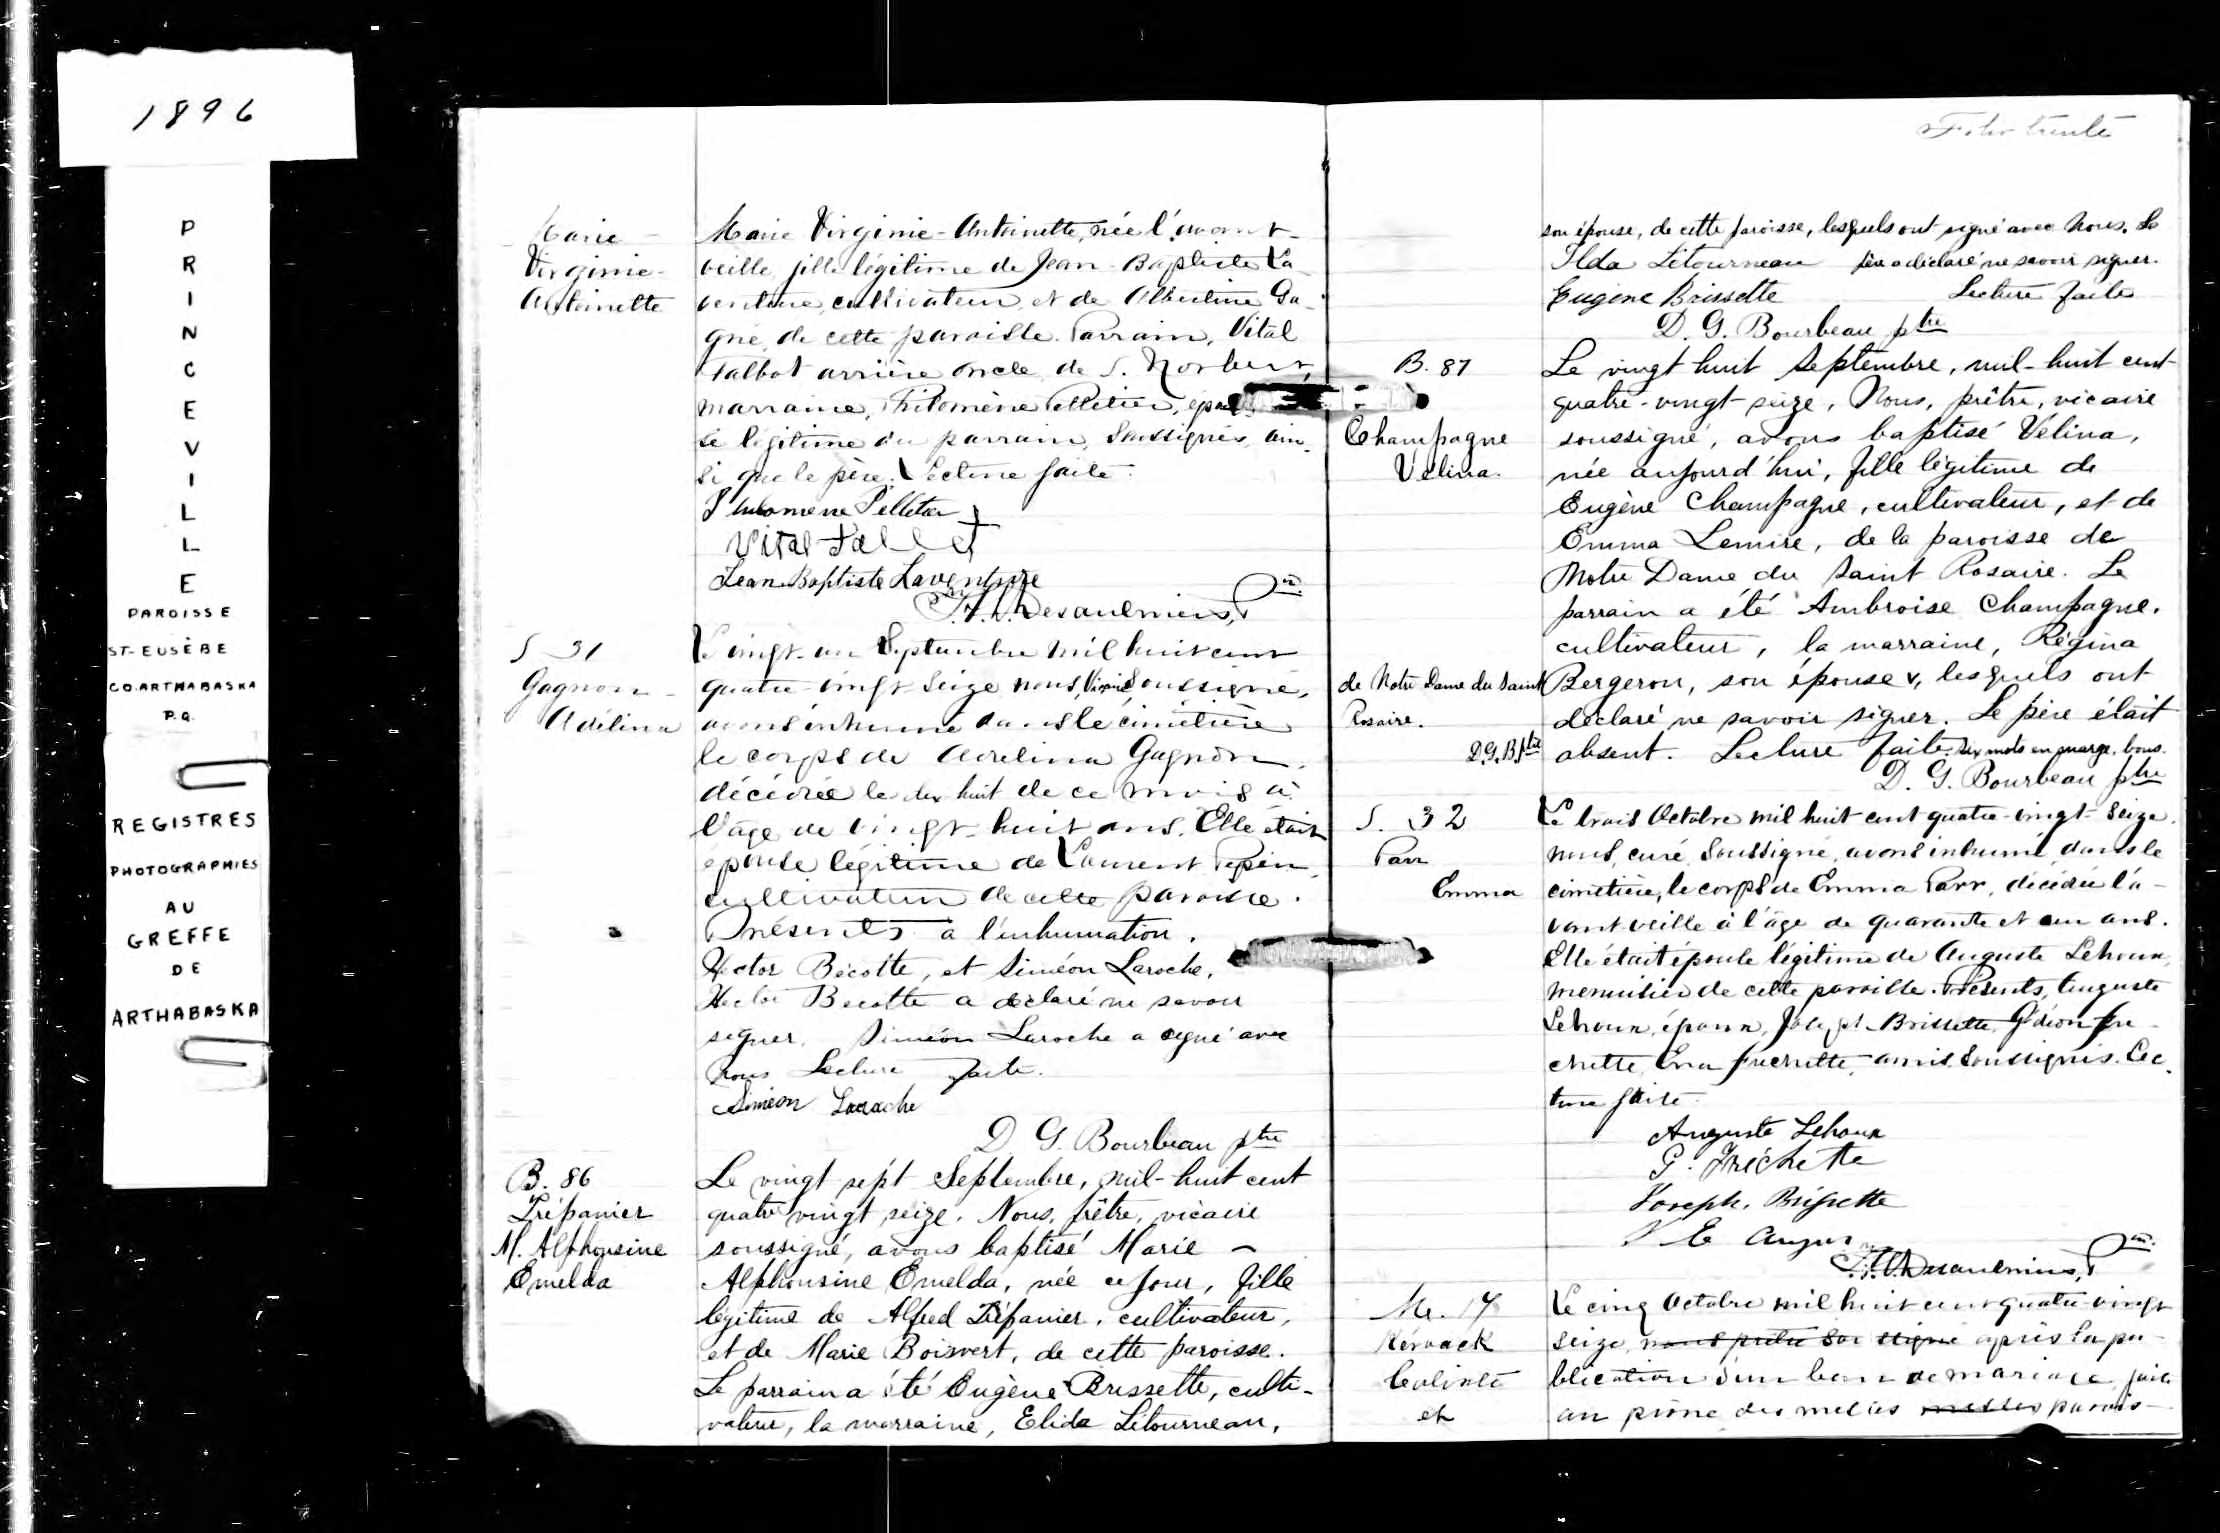 1896
PRINCEVILLE
PAROISSE
ST-EUSÈBE
CO. ARTHABASKA
P.Q.
REGISTRES
PHOTOGRAPHIES
AU
GREFFE
DE
ARTHABASKA
Marie
Virginie-
Antoinette
Marie Virginie-Antoinette, née l'avant-
veille, fille légitime de Jean-Baptiste La-
venture, cultivateur, et de Albertine Ga-
gné, de cette paroisse. Parrain, Vital
Talbot arrière oncle, de S. Norbert,
marraine, Philomène Pelletier, épou-
se légitime du parrain, soussignés, ain-
si que le père. Lecture faite.
Philomene Pelletier
Vital Talbot
Jean Baptiste Laventure
Desaulniers, Ptre
S 31
Gagnon
Adélina
Le vingt-un Septembre mil huit cent
quatre-vingt seize nous, Vicaire soussigné,
avons inhumé dans le cimetière
le corps de Adelina Gagnon,
décédée le dix huit de ce mois à
l'âge de vingt-huit ans. Elle était
épouse légitime de Laurent Pepin,
cultivateur de cette paroisse.
Présents à l'inhumation.
Hector Bécotte, et Siméon Laroche,
Hector Becotte a declaré ne savoir
signer. Siméon Laroche a signé avec
nous Lecture faite.
Simeon Laroche
D. G. Bourbeau ptre
B. 86
Trépanier
M. Alphonsine
Emelda
Le vingt sept Septembre, mil-huit cent
quatre vingt seize. Nous, prêtre, vicaire
soussigné, avons baptisé Marie -
Alphonsine Emelda, née ce jour, fille
légitime de Alfred Trépanier, cultivateur,
et de Marie Boisvert, de cette paroisse.
Le parrain a été Eugène Brissette, culti-
vateur, la marraine, Elida Létourneau,
Folio trente
son épouse, de cette paroisse, lesquels ont signé avec Nous. Le
Ilda Létourneau père a déclaré ne savoir signer.
Eugène Brissette Lecture faite
D. G. Bourbeau ptre
B. 87
Champagne
Velina.
Le vingt huit Septembre, mil-huit cent
quatre-vingt seize, Nous, prêtre, vicaire
soussigné, avons baptisé Velina,
née aujourd'hui, fille légitime de
Eugène Champagne, cultivateur, et de
Emma Lemire, de la paroisse de
Notre Dame du Saint Rosaire. Le
parrain a été Ambroise Champagne,
cultivateur, la marraine, Régina
de Notre Dame du Saint
Rosaire.
D.G.B. ptre
Bergeron, son épouse v, lesquels ont
déclaré ne savoir signer. Le père était
absent. Lecture faite. Six mots en marge. bons.
D. G. Bourbeau ptre
S. 32
Parr
Emma
Le trois Octobre mil huit cent quatre-vingt-seize.
nous, curé, soussigné, avons inhumé, dans le
cimetière, le corps de Emma Parr, décédée l'a-
vant veille à l'âge de quarante et un ans.
Elle était épouse légitime de Auguste Lehoux,
menuisier de cette paroisse. Présents, Auguste
Lehoux, époux, Joseph Brissette, Gédéon Fre-
chette, amis soussignés. Lec-
ture faite.
Auguste Lehoux
G. Fréchette
Joseph. Brissette
Desaulniers, Ptre
M. 17
Kérouack
et
Le cinq Octobre mil huit cent quatre-vingt
seize, nous prêtre sou ssigné après la pu-
blication d'un ban de mariage faite
au prône des messes messes parois-